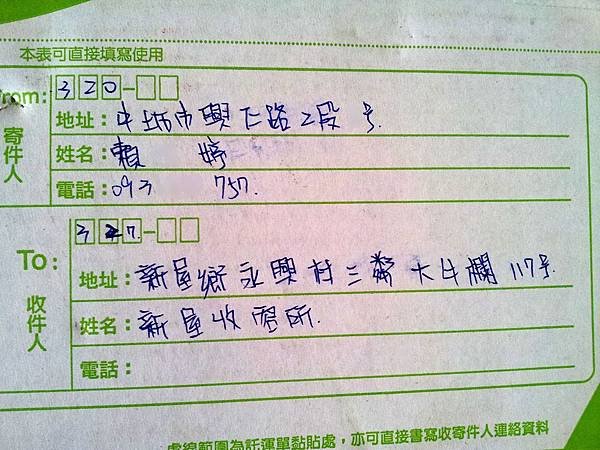 本表可直接填寫使用
From: 320-
寄件人
地址：中坜市興仁路2段 号.
姓名：賴 婷
電話：093 757.
327-
To:
收件人
地址：新屋鄉永興村三鄰大牛欄117号.
姓名：新屋收容所.
電話：
虛線範圍為託運單黏貼處，亦可直接書寫收寄件人連絡資料